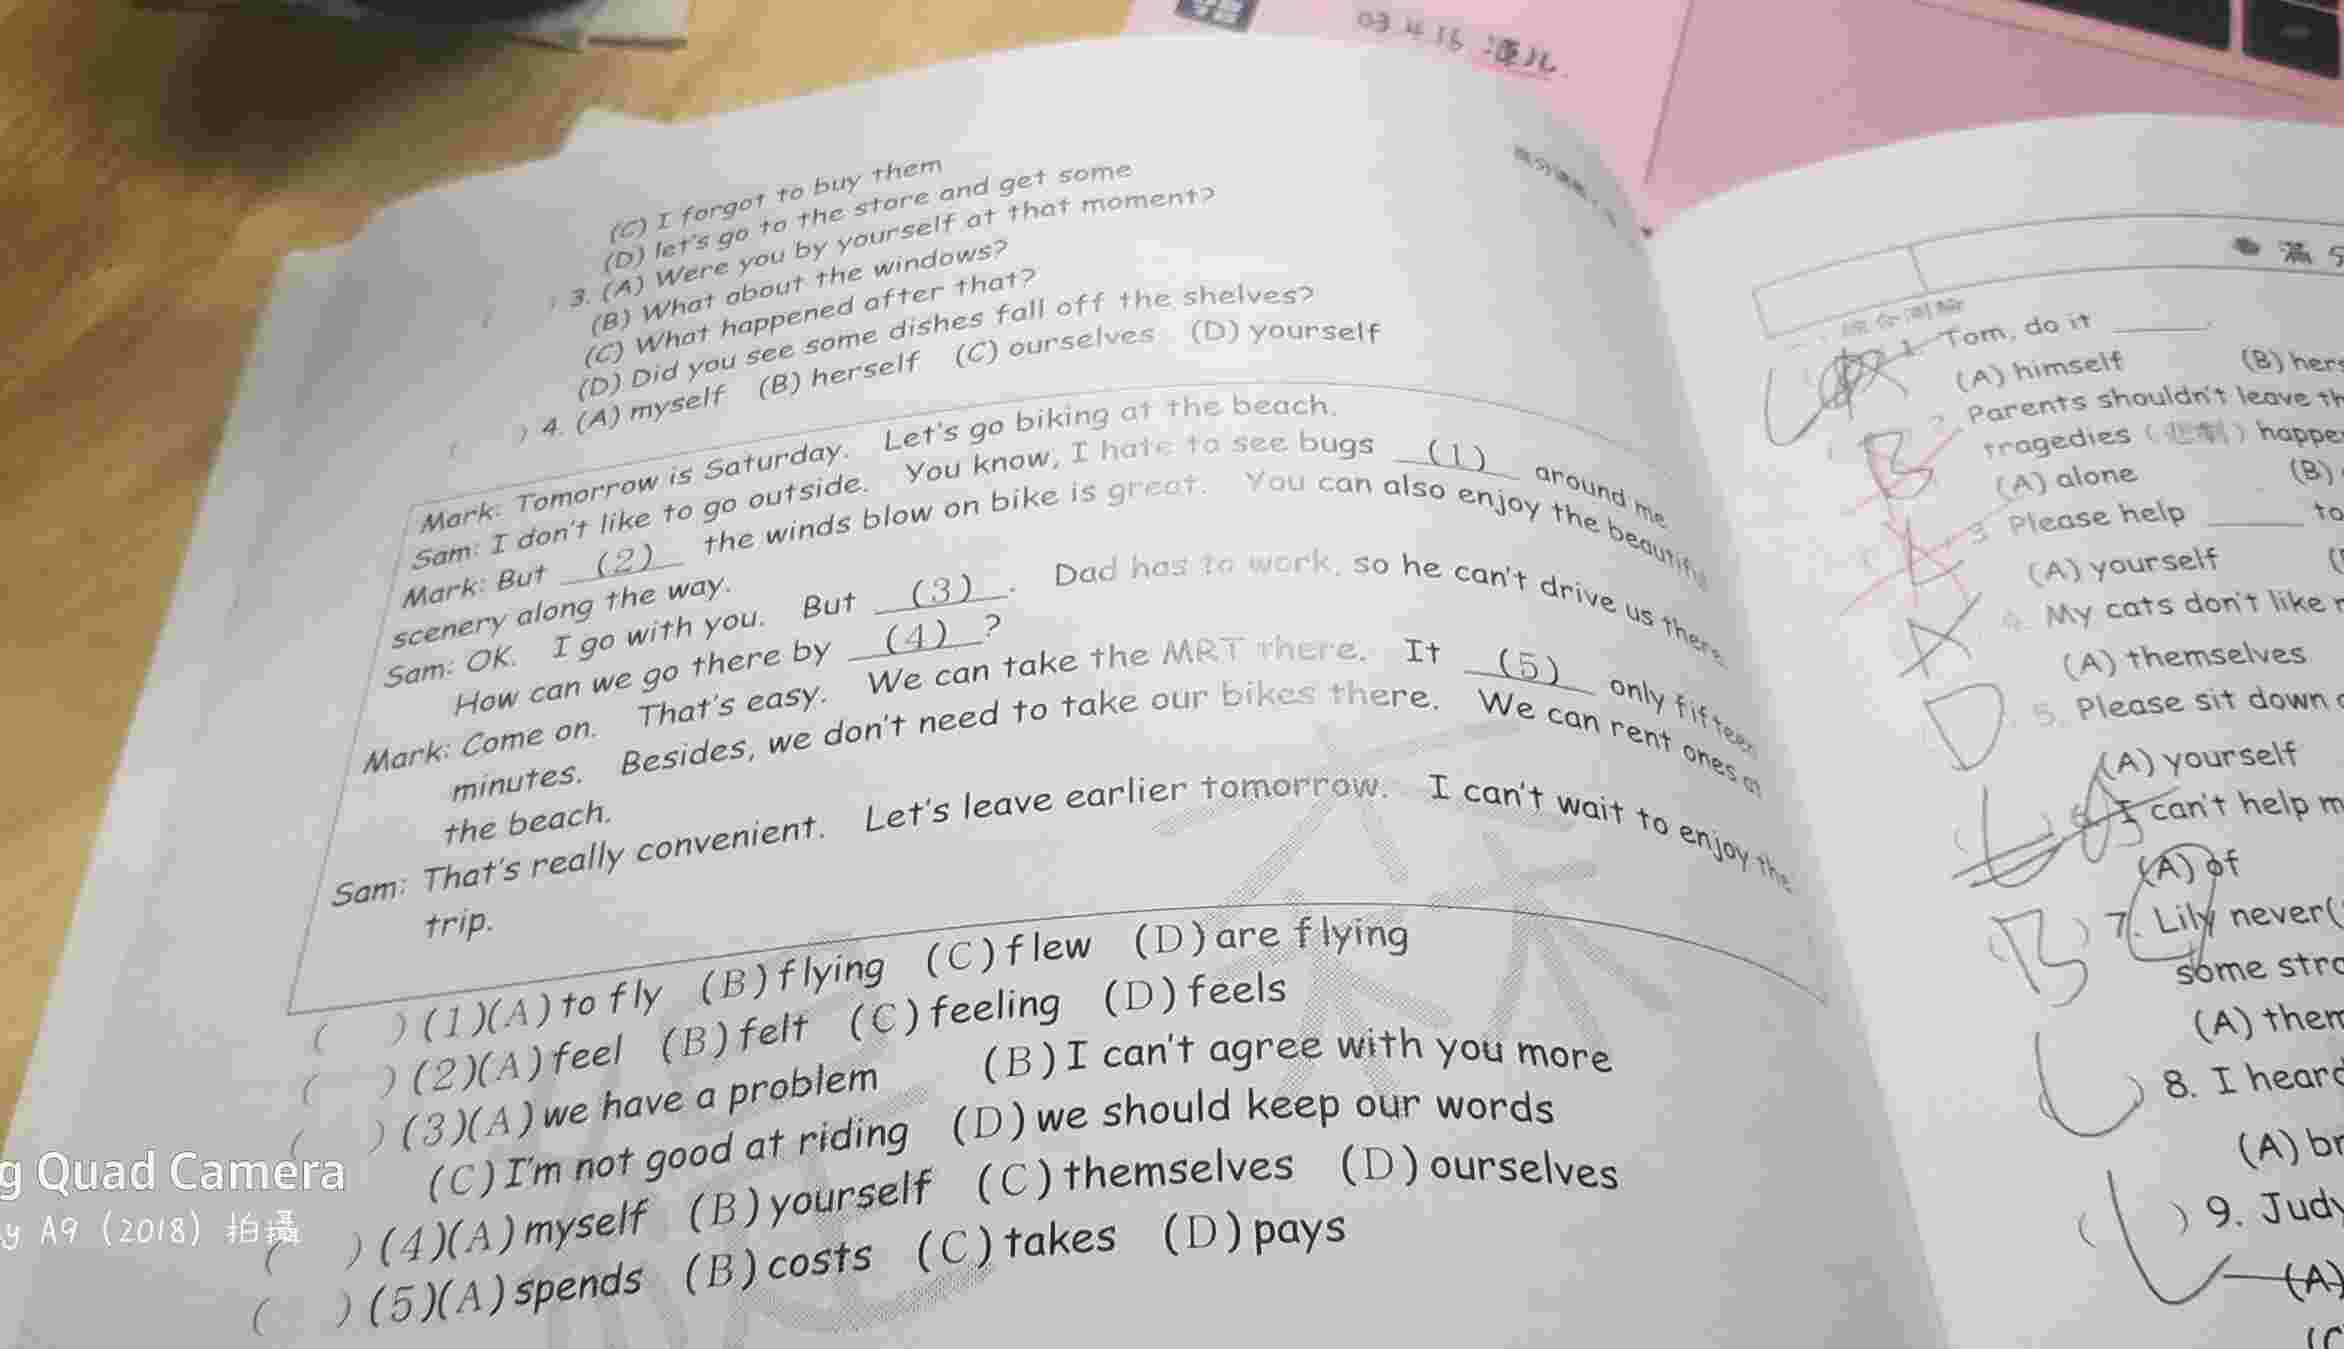 03.4.16
(C) I forgot to buy them
(D) let's go to the store and get some
) 3. (A) Were you by yourself at that moment?
(B) What about the windows?
(C) What happened after that?
(D) Did you see some dishes fall off the shelves?
( ) 4. (A) myself (B) herself (C) ourselves (D) yourself
Mark: Tomorrow is Saturday. Let's go biking at the beach.
Sam: I don't like to go outside. You know, I hate to see bugs (1) around me.
Mark: But (2) the winds blow on bike is great. You can also enjoy the beautiful
scenery along the way.
Sam: OK. I go with you. But (3). Dad has to work, so he can't drive us there.
How can we go there by (4)?
Mark: Come on. That's easy. We can take the MRT there. It (5) only fifteen
minutes. Besides, we don't need to take our bikes there. We can rent ones at
the beach.
Sam: That's really convenient. Let's leave earlier tomorrow. I can't wait to enjoy the
trip.
( ) (1)(A) to fly (B) flying (C) flew (D) are flying
( ) (2)(A) feel (B) felt (C) feeling (D) feels
( ) (3)(A) we have a problem (B) I can't agree with you more
(C) I'm not good at riding (D) we should keep our words
( ) (4)(A) myself (B) yourself (C) themselves (D) ourselves
( ) (5)(A) spends (B) costs (C) takes (D) pays
g Quad Camera
y A9 (2018) 拍攝
滿
1. Tom, do it ____.
(A) himself (B) hers
B 2. Parents shouldn't leave th
tragedies (悲劇) happe
(A) alone (B)
A 3. Please help ____ to
(A) yourself
A 4. My cats don't like
(A) themselves
D 5. Please sit down
(A) yourself
6. I can't help m
(A) of
B ) 7. Lily never(
some stra
(A) them
) 8. I heard
(A) br
( ) 9. Judy
(A)
(C